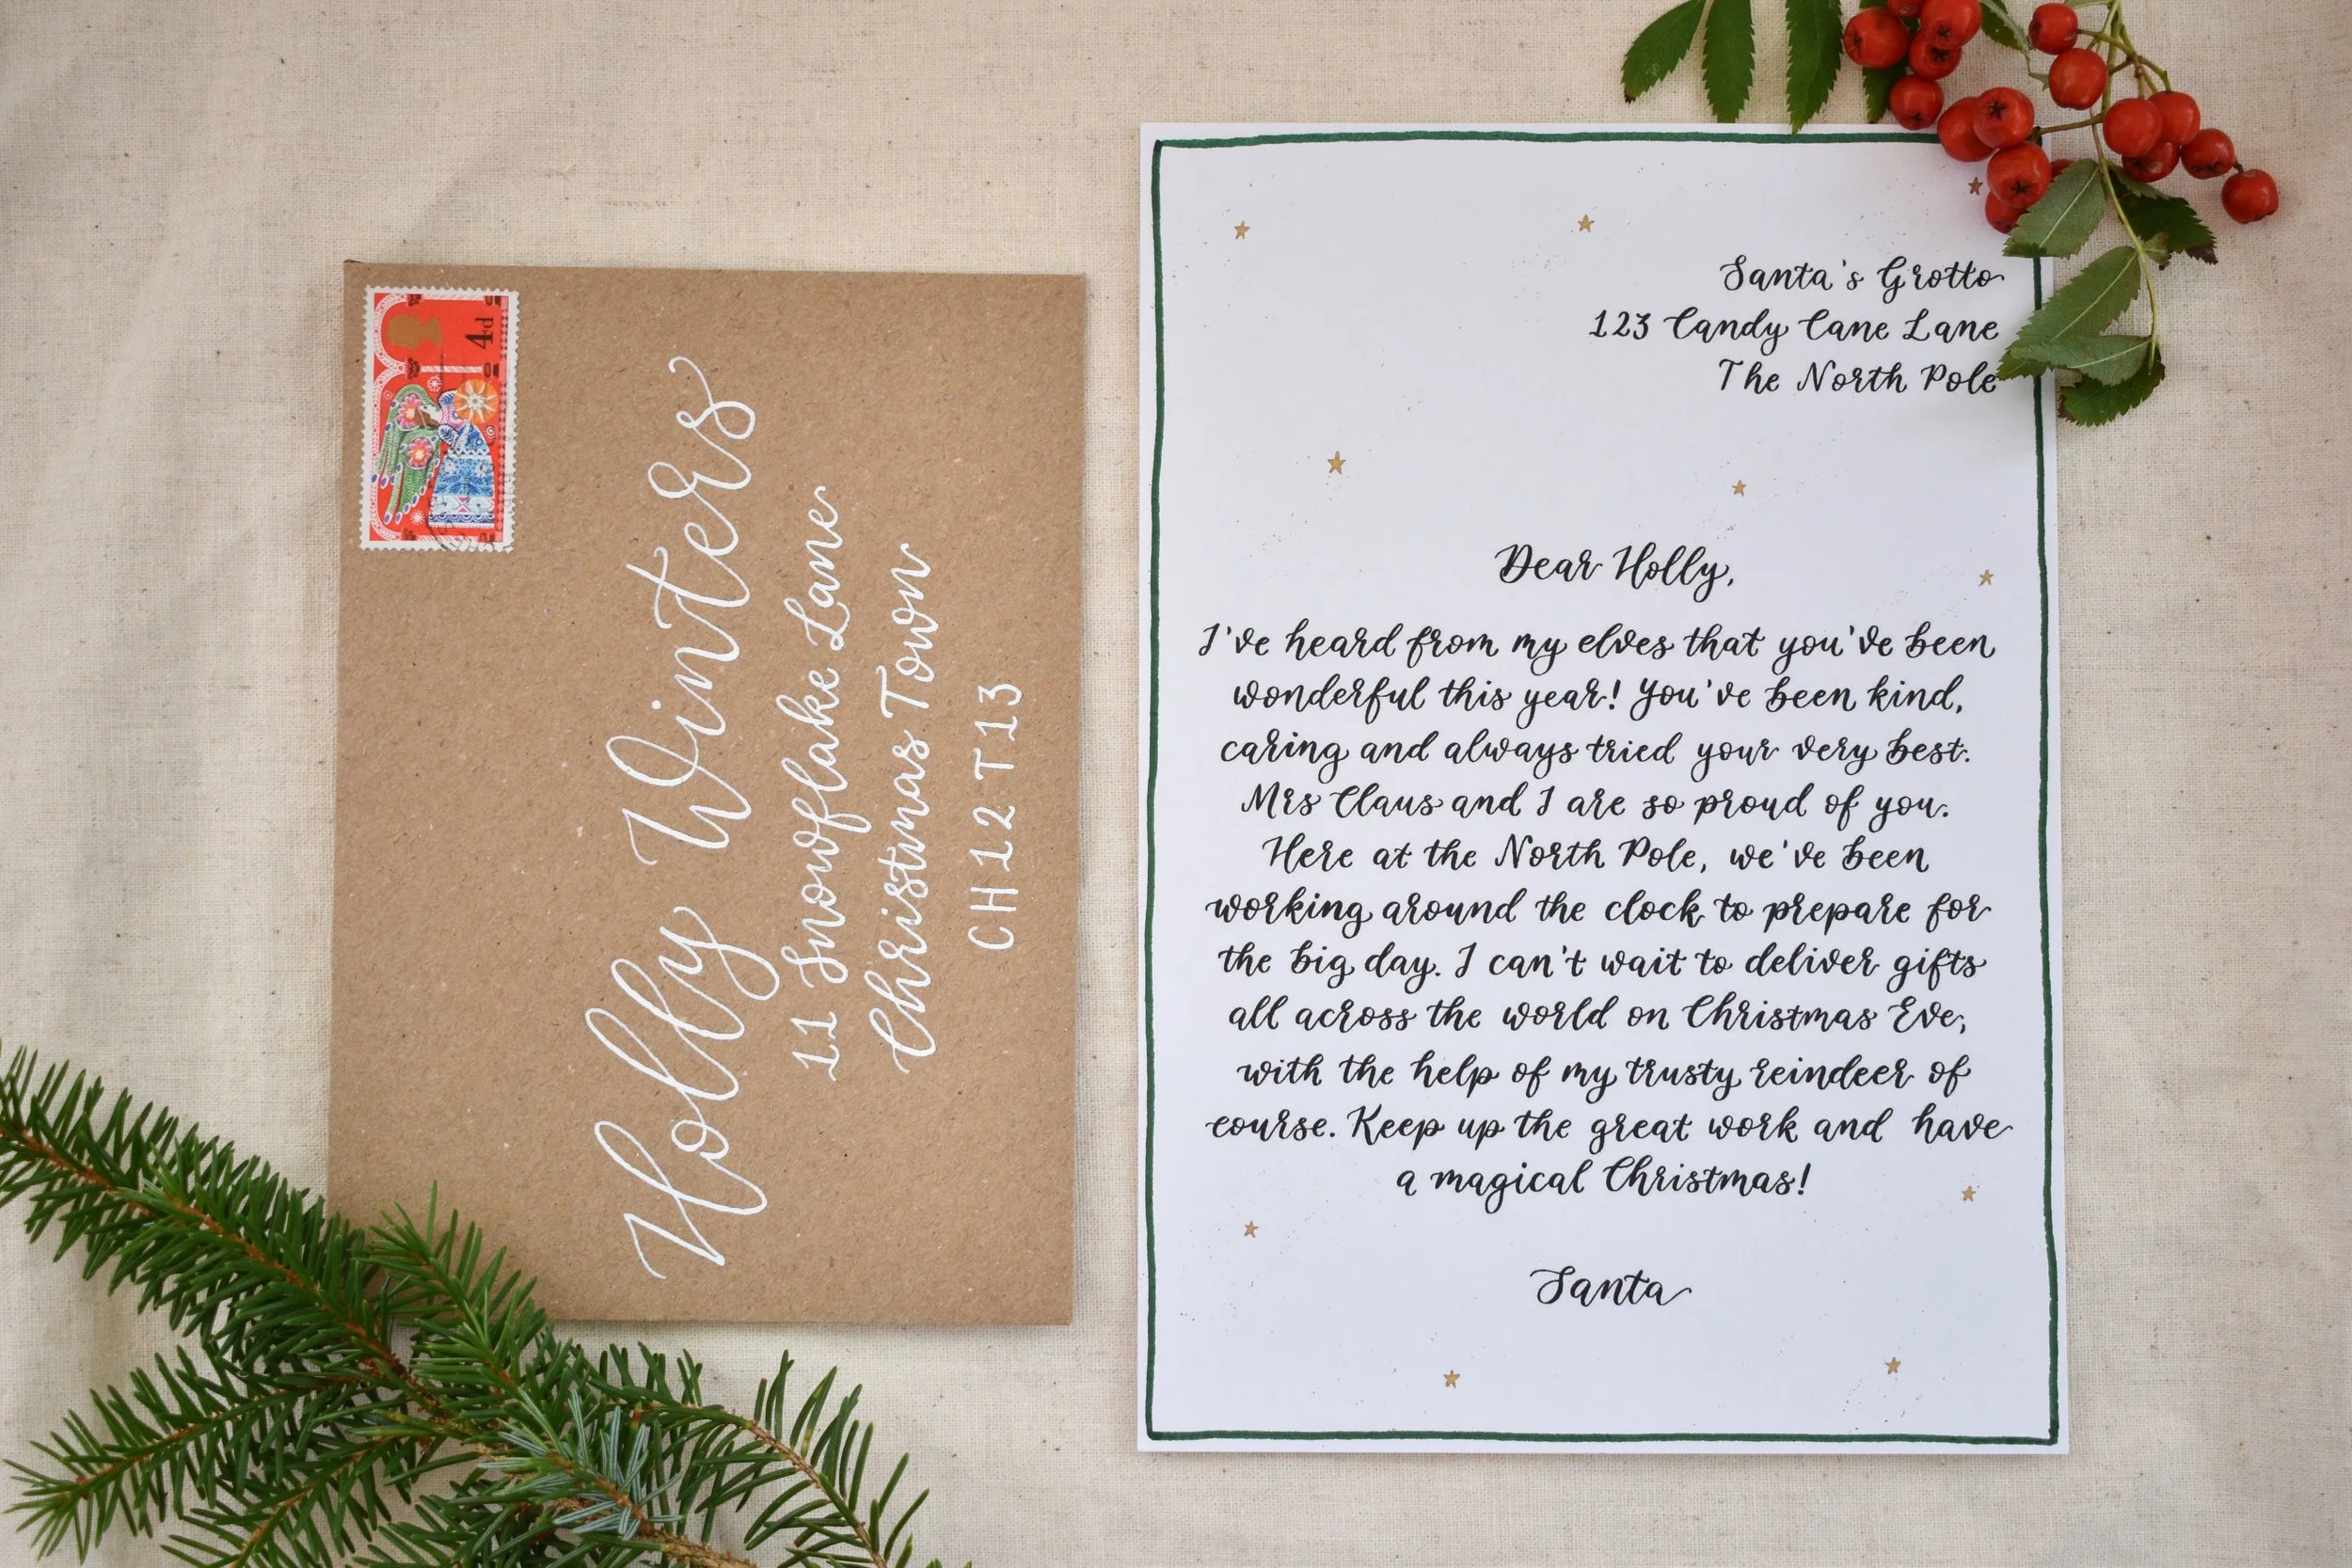 4d
Holly Winters
11 Snowflake Lane
Christmas Town
CH12 T13
Santa's Grotto
123 Candy Cane Lane
The North Pole
Dear Holly,
I've heard from my elves that you've been
wonderful this year! You've been kind,
caring and always tried your very best.
Mrs Claus and I are so proud of you.
Here at the North Pole, we've been
working around the clock to prepare for
the big day. I can't wait to deliver gifts
all across the world on Christmas Eve,
with the help of my trusty reindeer of
course. Keep up the great work and have
a magical Christmas!
Santa